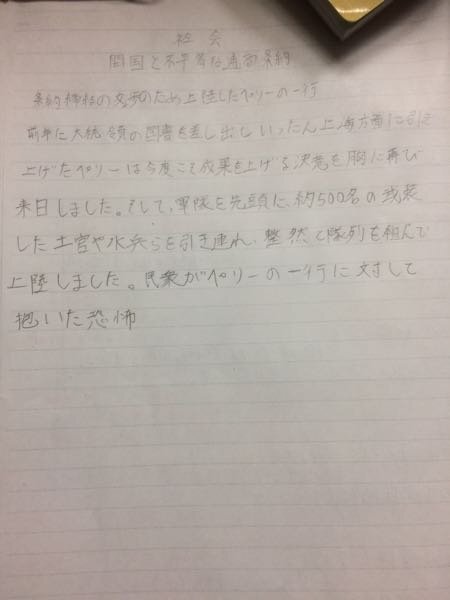 社会
開国と不平等な通商条約
条約締結の交渉のため上陸したペリーの一行
前年に大統領の国書を差し出しいったん上海方面に引き
上げたペリーは今度こそ成果を上げる決意を胸に再び
来日しました。そして、軍隊を先頭に、約500名の武装
した士官や水兵らを引き連れ、整然と隊列を組んで
上陸しました。民衆がペリーの一行に対して
抱いた恐怖